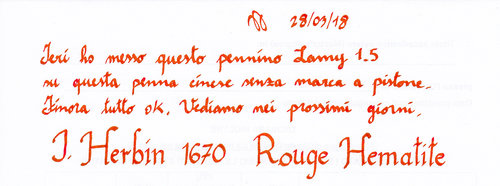 28/03/18
Ieri ho messo questo pennino Lamy 1.5
su questa penna cinese senza marca a pistone.
Finora tutto ok. Vediamo nei prossimi giorni.
J. Herbin 1670 Rouge Hematite